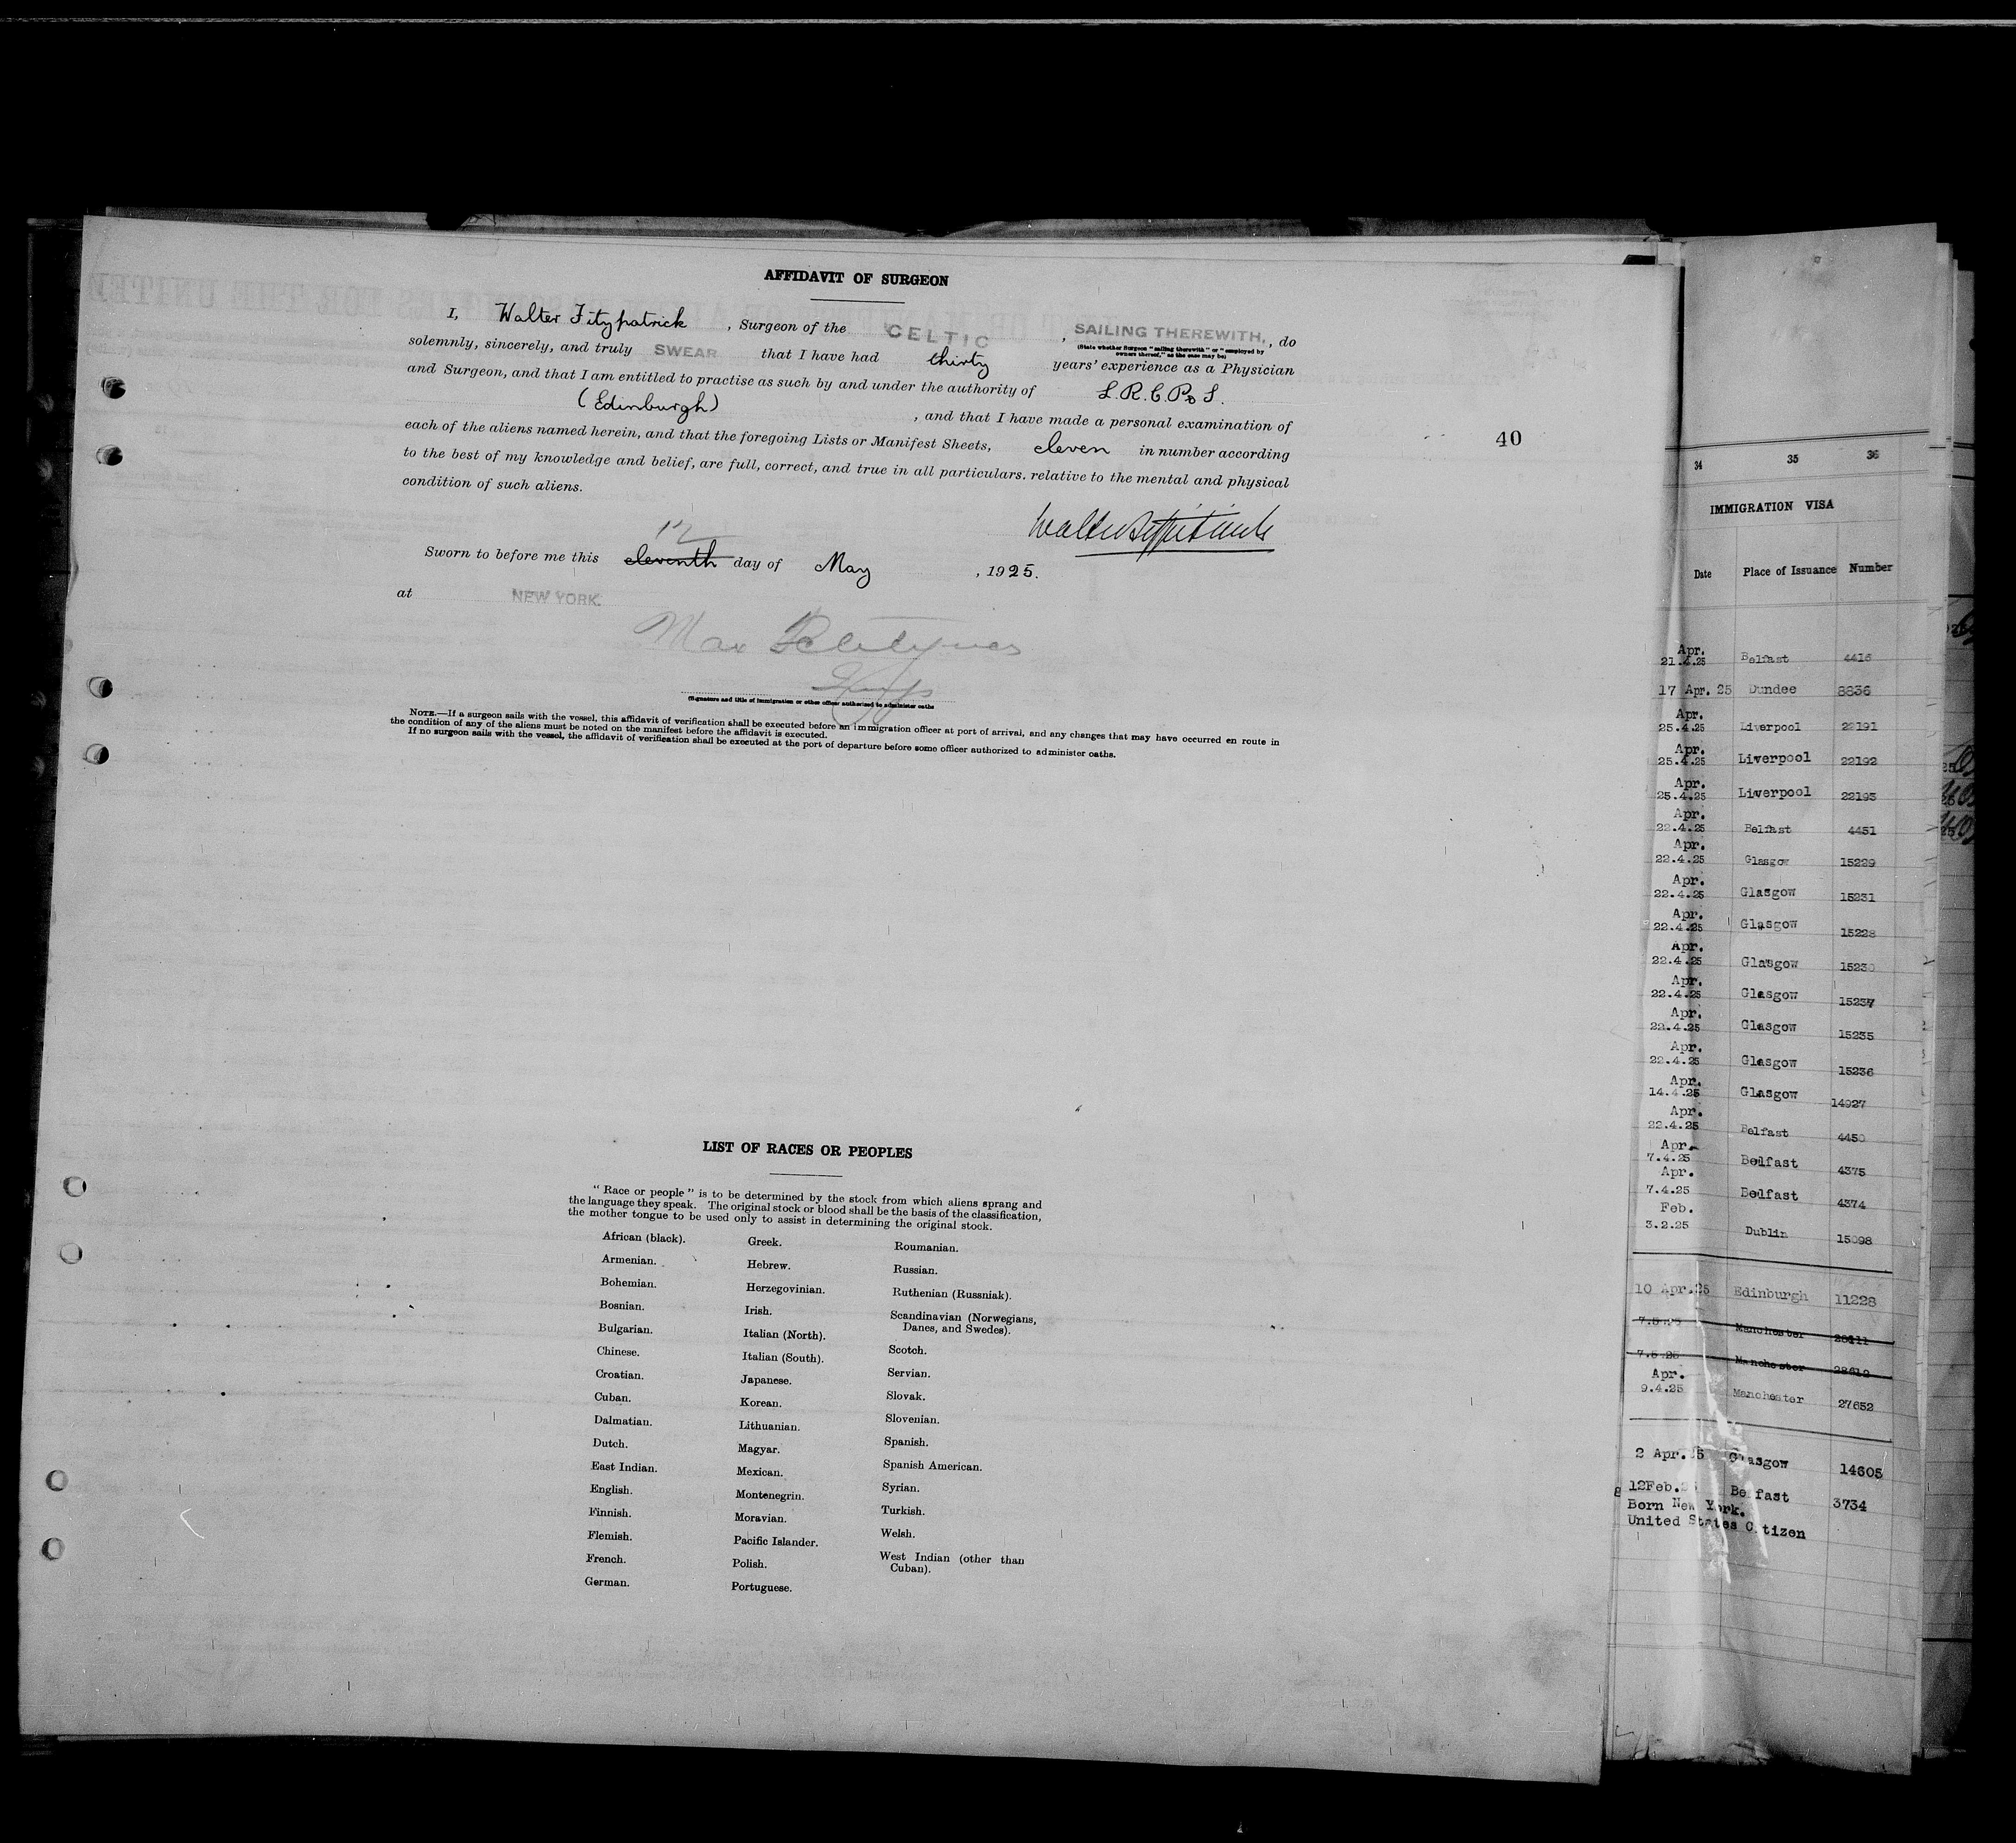 AFFIDAVIT OF SURGEON
I, Walter Fitzpatrick, Surgeon of the CELTIC, SAILING THEREWITH, , do
(State whether Surgeon "sailing therewith" or "employed by
owners thereof," as the case may be)
solemnly, sincerely, and truly SWEAR that I have had thirty years' experience as a Physician
and Surgeon, and that I am entitled to practise as such by and under the authority of L.R.C.P. & S.
(Edinburgh), and that I have made a personal examination of
each of the aliens named herein, and that the foregoing Lists or Manifest Sheets, eleven in number according
to the best of my knowledge and belief, are full, correct, and true in all particulars. relative to the mental and physical
condition of such aliens.
12
Sworn to before me this eleventh day of May, 1925.
at NEW YORK.
Max
(Signature and title of immigration or other officer authorized to administer oaths
NOTE.—If a surgeon sails with the vessel, this affidavit of verification shall be executed before an immigration officer at port of arrival, and any changes that may have occurred en route in
the condition of any of the aliens must be noted on the manifest before the affidavit is executed.
If no surgeon sails with the vessel, the affidavit of verification shall be executed at the port of departure before some officer authorized to administer oaths.
40
LIST OF RACES OR PEOPLES
"Race or people" is to be determined by the stock from which aliens sprang and
the language they speak. The original stock or blood shall be the basis of the classification,
the mother tongue to be used only to assist in determining the original stock.
African (black).
Armenian.
Bohemian.
Bosnian.
Bulgarian.
Chinese.
Croatian.
Cuban.
Dalmatian.
Dutch.
East Indian.
English.
Finnish.
Flemish.
French.
German.
Greek.
Hebrew.
Herzegovinian.
Irish.
Italian (North).
Italian (South).
Japanese.
Korean.
Lithuanian.
Magyar.
Mexican.
Montenegrin.
Moravian.
Pacific Islander.
Polish.
Portuguese.
Roumanian.
Russian.
Ruthenian (Russniak).
Scandinavian (Norwegians,
Danes, and Swedes).
Scotch.
Servian.
Slovak.
Slovenian.
Spanish.
Spanish American.
Syrian.
Turkish.
Welsh.
West Indian (other than
Cuban).
34 35 36
IMMIGRATION VISA
Date Place of Issuance Number
Apr.
21.4.25 Belfast 4416
17 Apr. 25 Dundee 8836
Apr.
25.4.25 Liverpool 22191
Apr.
25.4.25 Liverpool 22192
Apr.
25.4.25 Liverpool 22193
Apr.
22.4.25 Belfast 4451
Apr.
22.4.25 Glasgow 15229
Apr.
22.4.25 Glasgow 15231
Apr.
22.4.25 Glasgow 15228
Apr.
22.4.25 Glasgow 15230
Apr.
22.4.25 Glasgow 15237
Apr.
22.4.25 Glasgow 15235
Apr.
22.4.25 Glasgow 15236
Apr.
14.4.25 Glasgow 14927
Apr.
22.4.25 Belfast 4450
Apr.
7.4.25 Belfast 4375
Apr.
7.4.25 Belfast 4374
Feb.
3.2.25 Dublin 15098
10 Apr.25 Edinburgh 11228
7.5.25 Manchester
7.5.25 Manchester
Apr.
9.4.25 Manchester 27652
2 Apr.25 Glasgow 14605
12Feb. Belfast 3734
Born New York.
United States Citizen